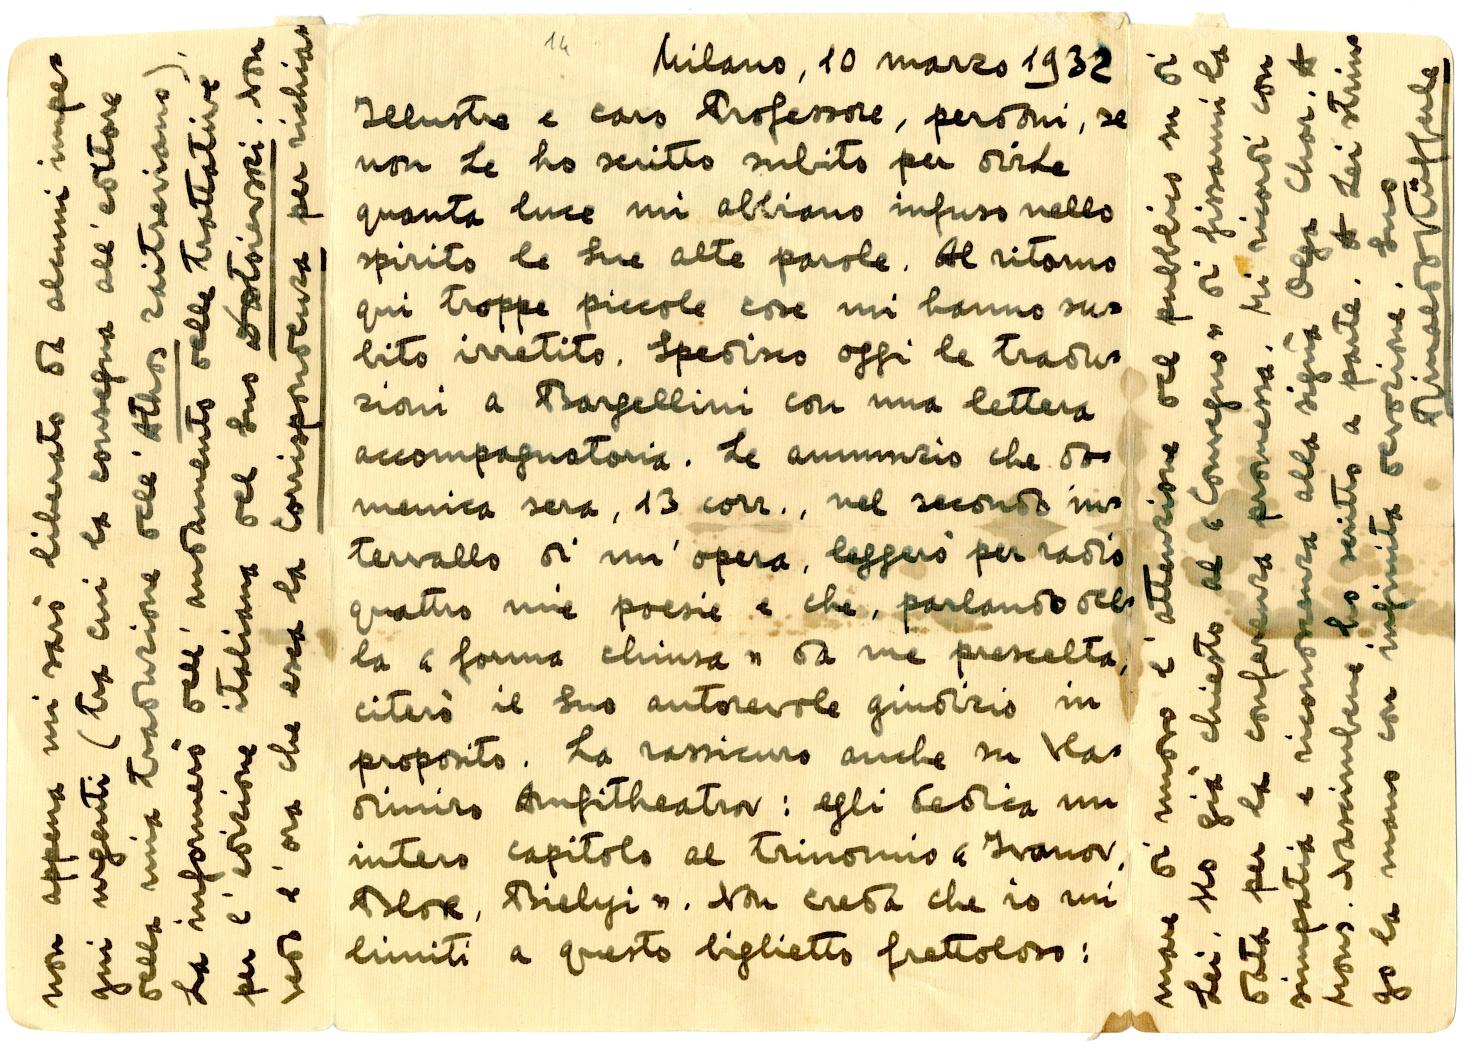 14
Milano, 10 marzo 1932
Illustre e caro Professore, perdoni, se
non Le ho scritto subito per dirLe
quanta luce mi abbiano infuso nello
spirito le Sue alte parole. Al ritorno
qui troppe piccole cose mi hanno su=
bito irretito. Spedisco oggi le tradu=
zioni a Bargellini con una lettera
accompagnatoria. Le annunzio che do=
menica sera, 13 corr., nel secondo in=
tervallo di un'opera, leggerò per radio
quattro mie poesie e che, parlando del=
la « forma chiusa » da me prescelta,
citerò il Suo autorevole giudizio in
proposito. La rassicuro anche su Vla=
dimiro Amfitheatrov: egli dedica un
intero capitolo al trinomio « Ivanov,
Blok, Bielyi ». Non creda che io mi
limiti a questo biglietto frettoloso:
non appena mi sarò liberato da alcuni impe=
gni urgenti (tra cui la consegna all'editore
della mia traduzione dell'Athos zaitseviano),
La informerò dell'andamento delle trattative
per l'edizione italiana del Suo Dostoievski. Non
vedo l'ora che esca la Corrispondenza per richia=
mare di nuovo l'attenzione del pubblico su di
Lei. Ho già chiesto al « Convegno » di fissarmi la
data per la conferenza promessa. Mi ricordi con
simpatia e riconoscenza alla sigra Olga Chor. A
Mons. Nascimbene ho scritto a parte. A Lei strin=
go la mano con infinita devozione. Suo
Rinaldo Küfferle